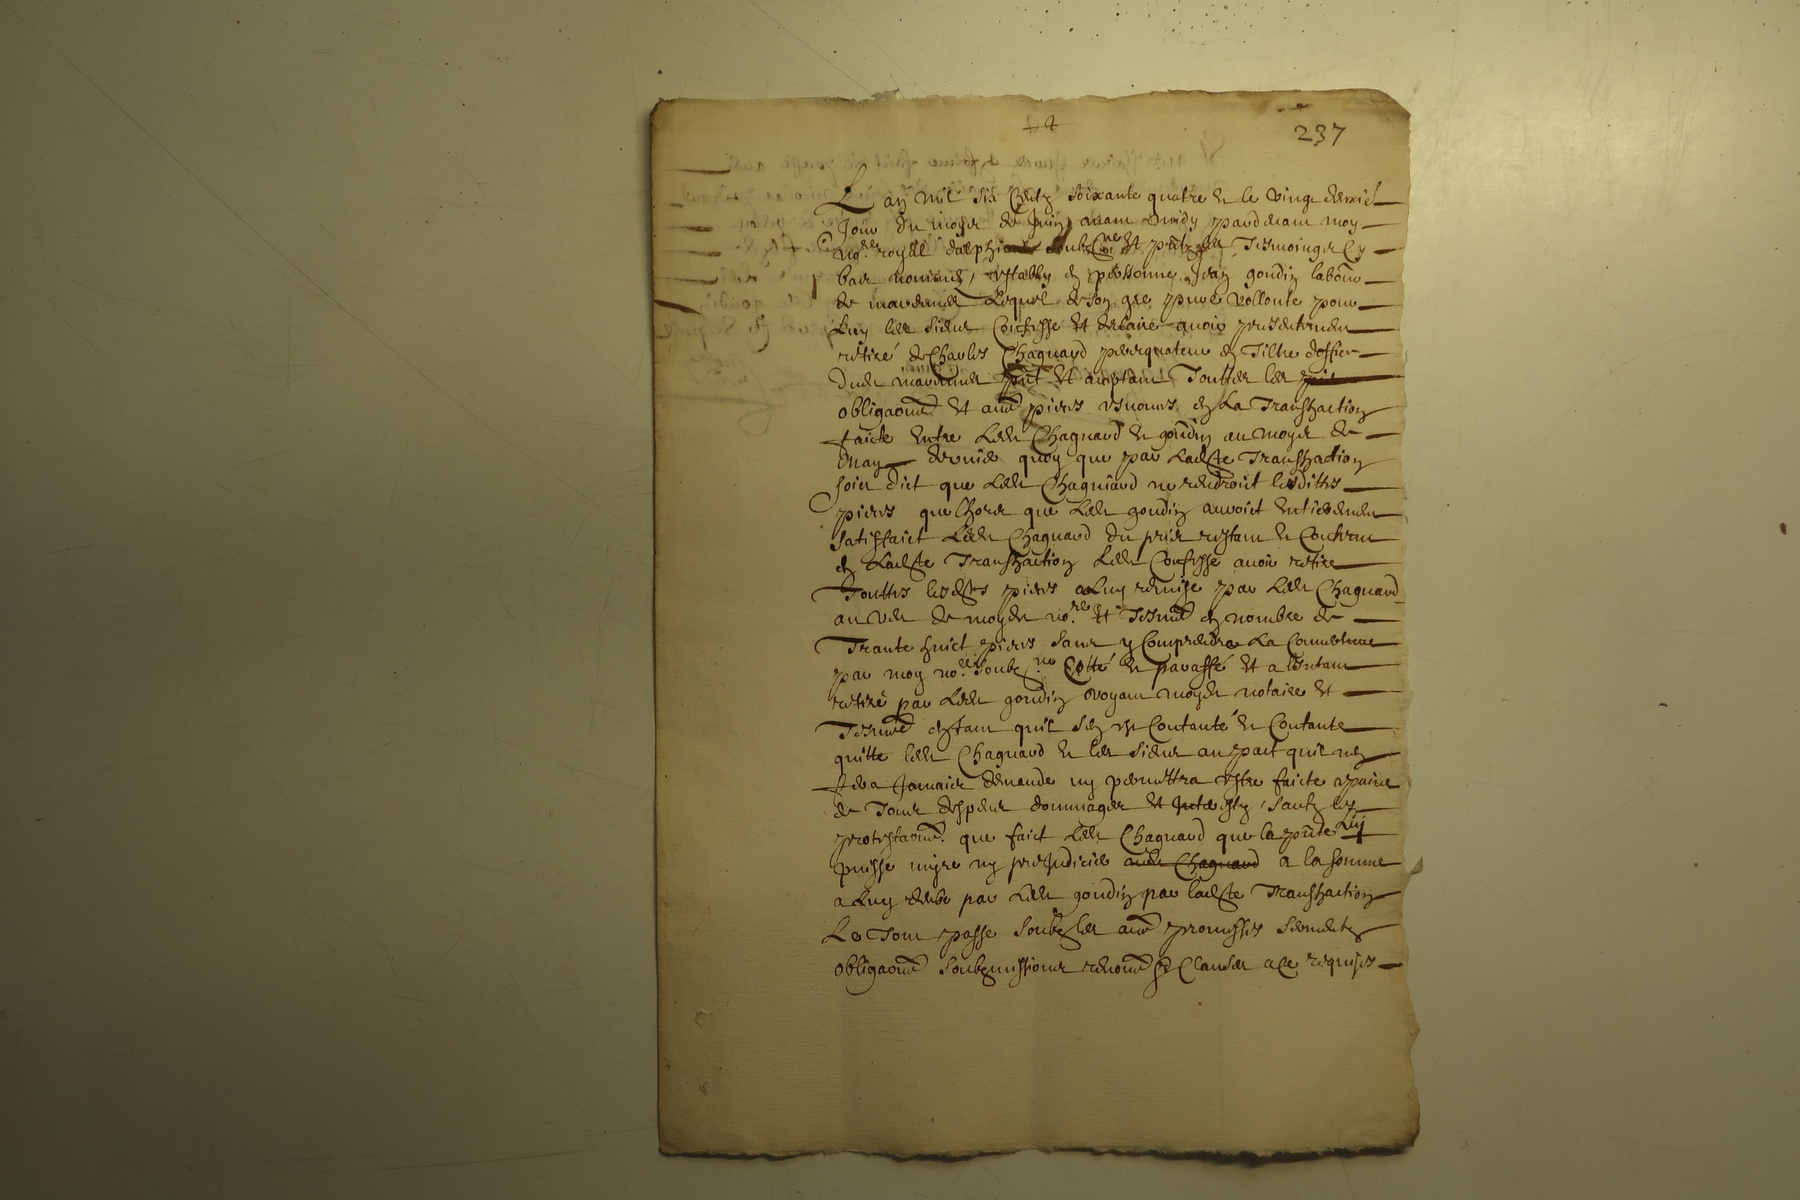 237
L an mil six Centz soixante quatre et le vingt
Jour du moys de Juin avant midy pardevant moy
no.re royal dalphinal soubz.ne et pntz les Tesmoings Cy
bas nommes, estably en personne Jean goudin labour
de lequel de son gre pure vollonte pour
Luy les siens Confesse et declaire avoir presentement
retiré de Charles Chagnard perequateur en Tiltre doffice
dud pnt et aceptant Touttes les
obligaons et au.es pieces en La Transaction
faicte Entre Led Chagnard et goudin au moys de
May dernier quoy que par Lad.te Transaction
soit dict que Led Chagniard ne rendroit lesdittes
pieces que lhors que Led goudin auroict Entierement
satisfaict Led Chagnard du prix restant et Contenu
en Lad.te Transaction Led Confesse avoir retire
Touttes lesd.tes pieces a Luy remise par Led Chagnard
au veu de moyd no.re et Tesm.s en nombre de
Trante huict pieces sans y Comprendre La Couverture
par moy no.re soubz.ne Cotté et paraffé et a linstant
retiré par Led goudin voyant moyd notaire et
Tesmo.s en tant quil sen est Contanté et Contante
quitte led Chagnard et les siens au pact quil nen
fera Jamais demande ny permettra estre faicte a paine
de Tous despens dommages et Interestz, sauf les
protestaons que faict Led Chagnard que la pnte Luy
puisse nuyre ny prejudicier aud Chagnard a la somme
a Luy deube par Led goudin par lad.te Transaction
Le Tout passe soubz les au.es promesses sermentz
obligaons soubzmissions renon.ons et Clauses a ce requises